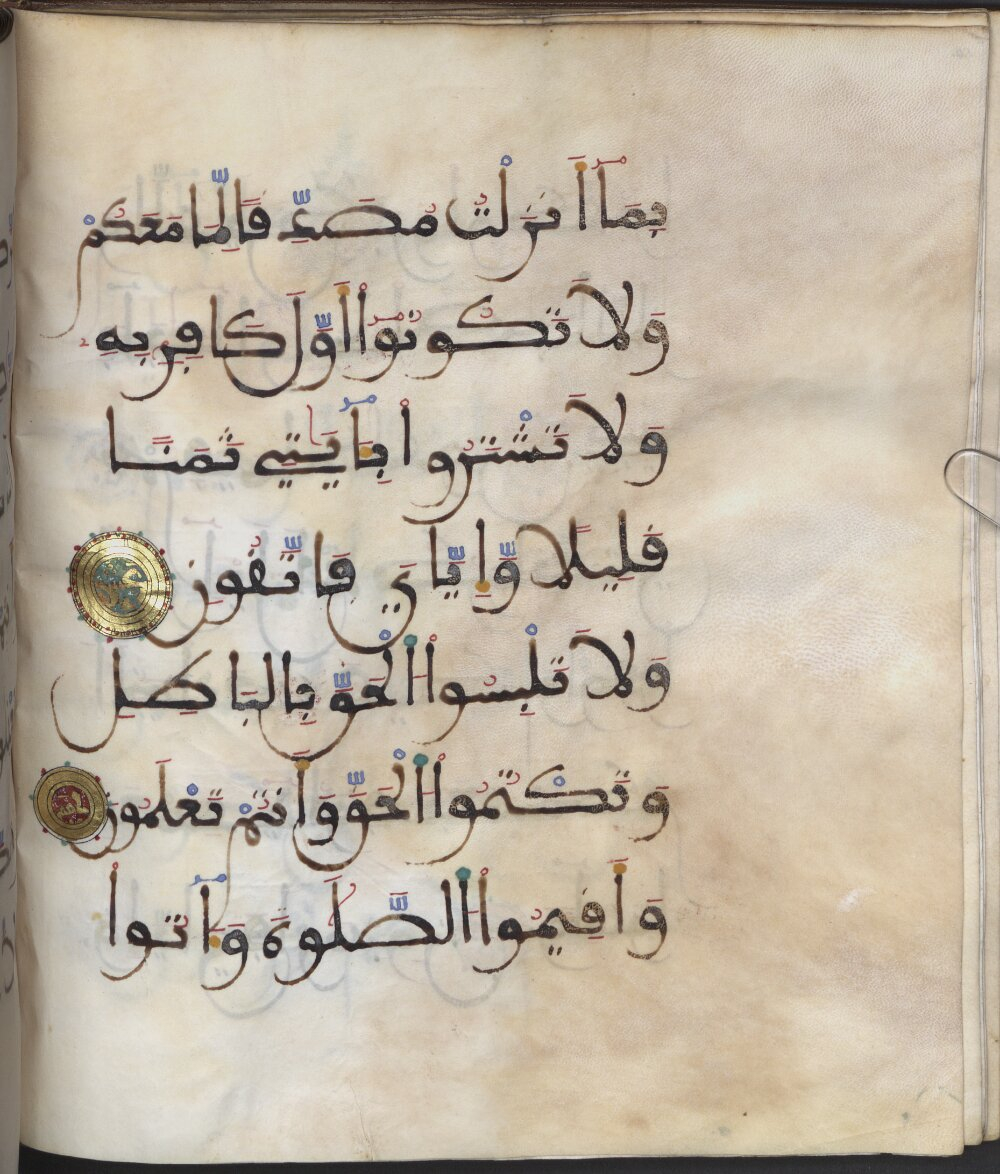 بِمَا أَنزَلْتُ مُصَدِّقًا لِّمَا مَعَكُمْ
وَلَا تَكُونُوا أَوَّلَ كَافِرٍ بِهِ
وَلَا تَشْتَرُوا بِـَٔايَٰتِي ثَمَنًا
قَلِيلًا وَإِيَّايَ فَاتَّقُونِ
وَلَا تَلْبِسُوا الْحَقَّ بِالْبَاطِلِ
وَتَكْتُمُوا الْحَقَّ وَأَنتُمْ تَعْلَمُونَ
وَأَقِيمُوا الصَّلَوٰةَ وَءَاتُوا